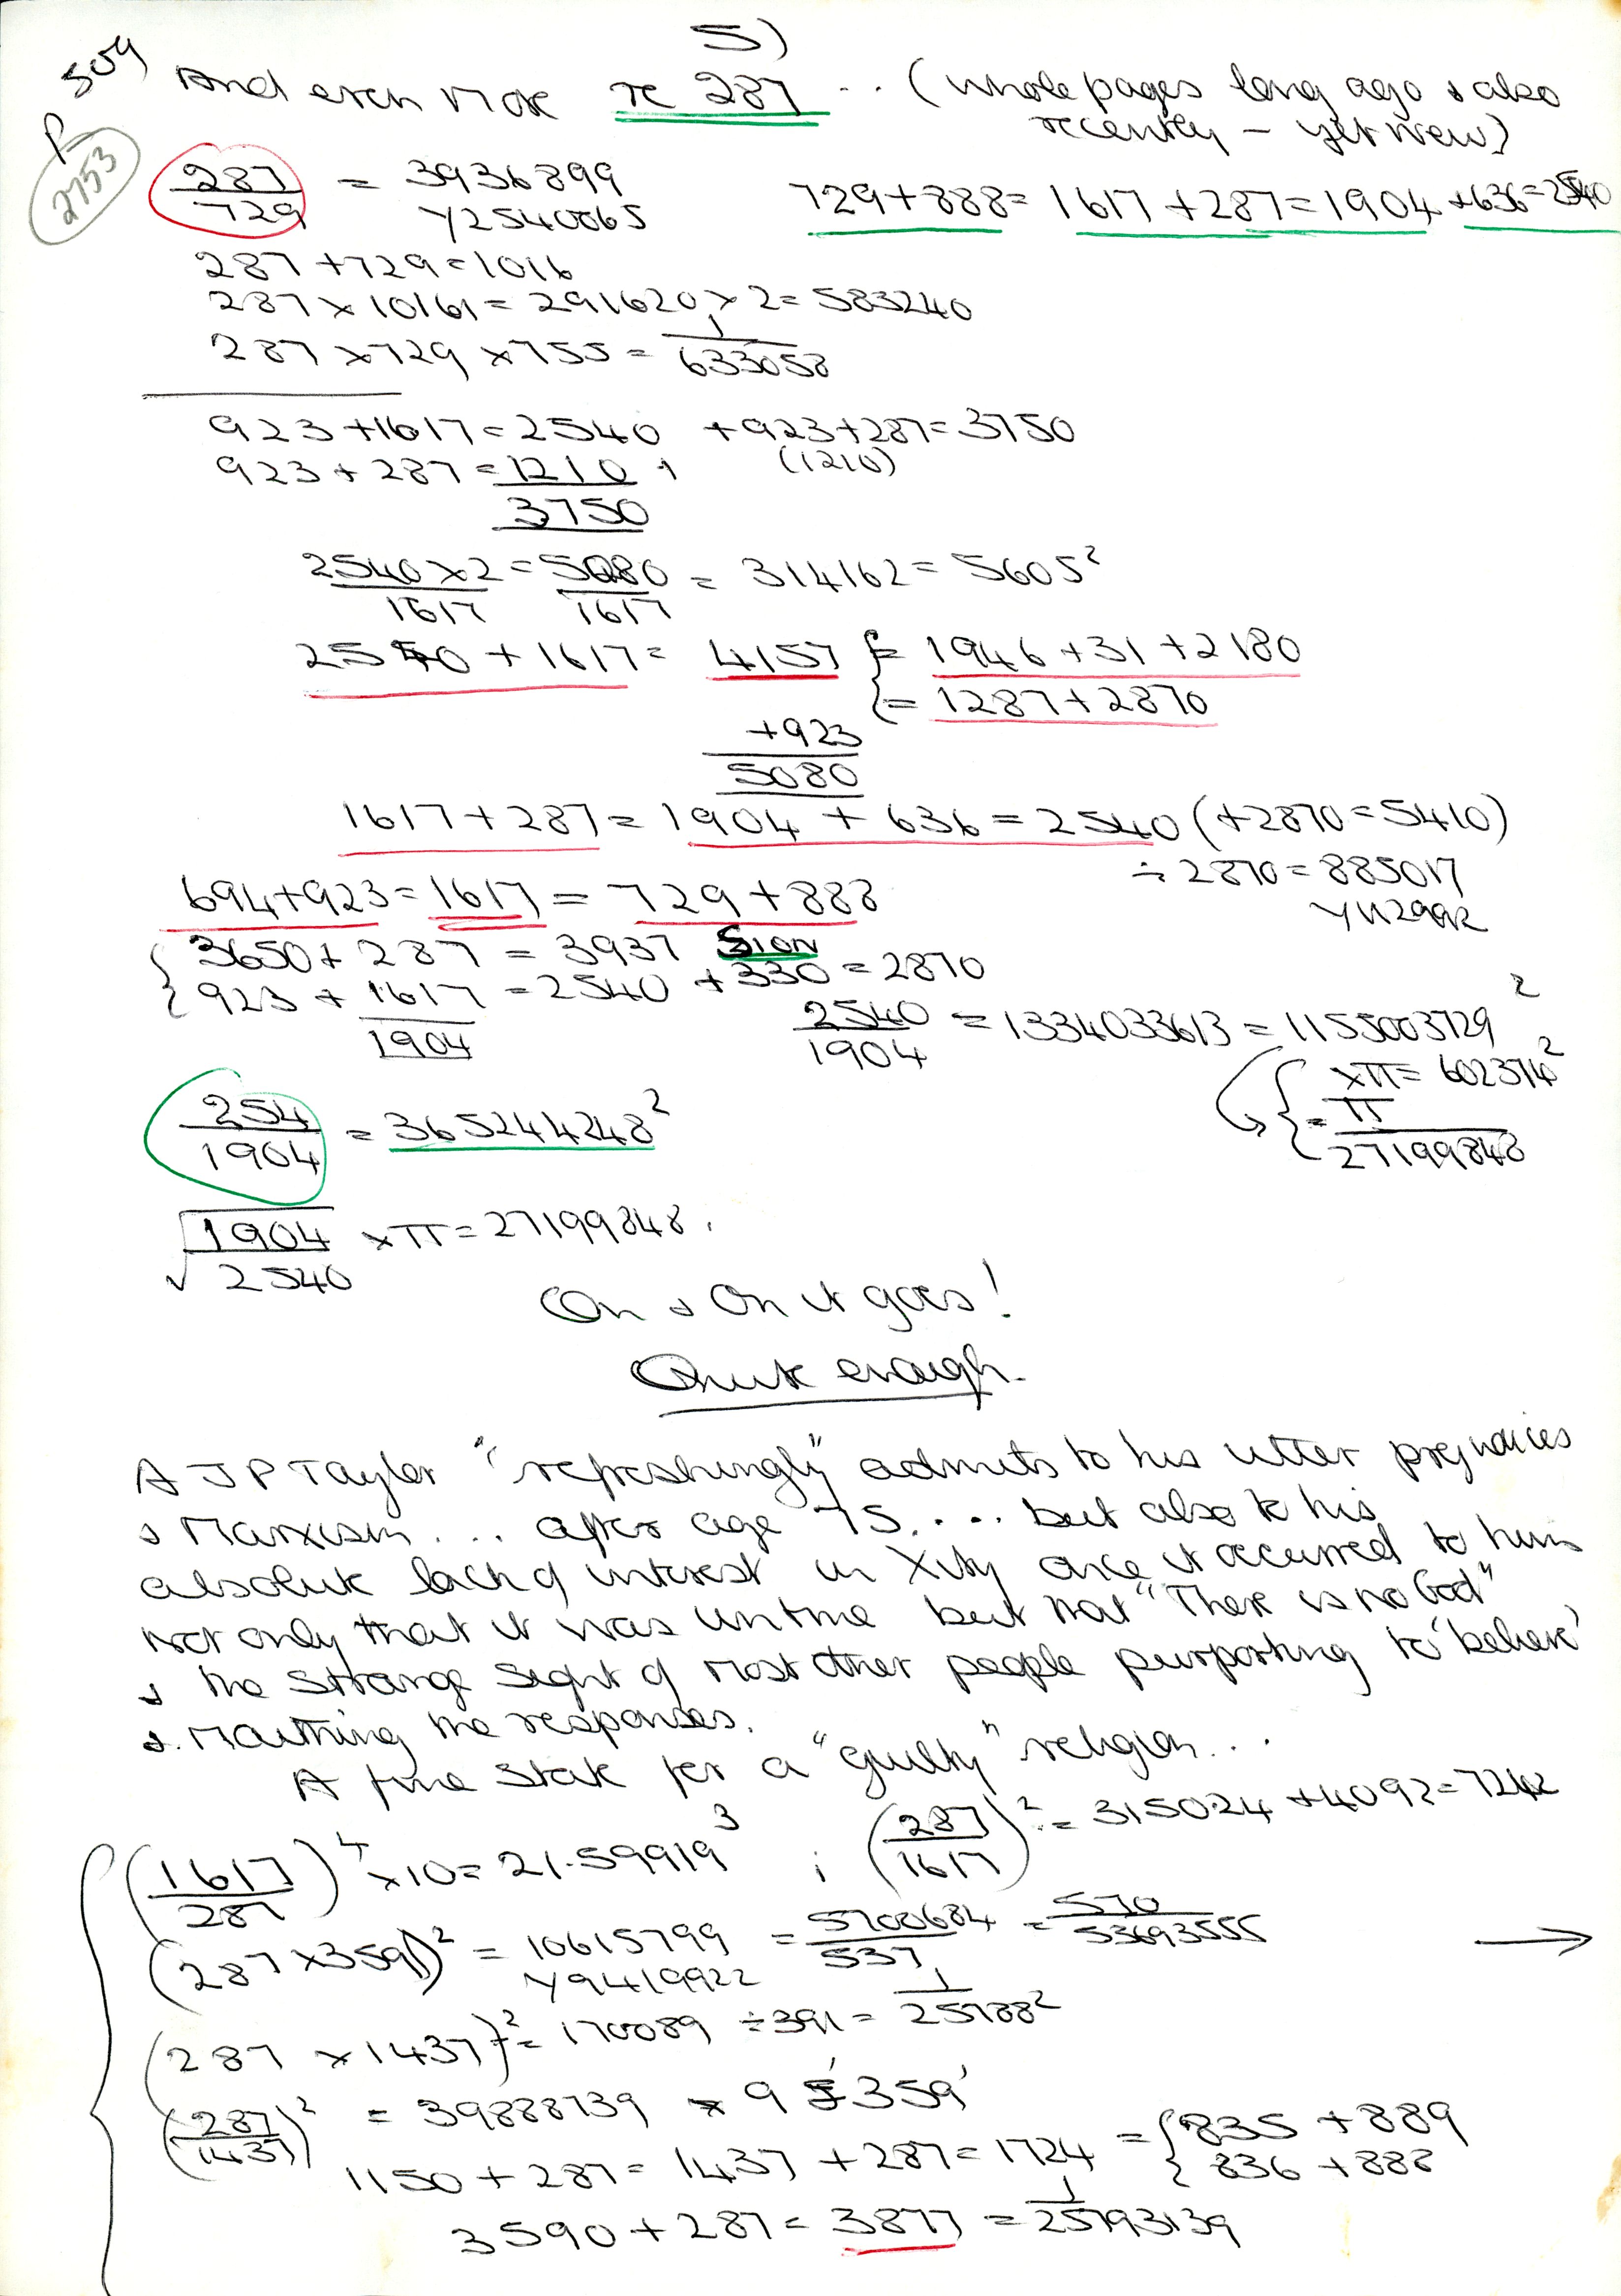 5)
P 509
2753
And even more re 287 ... (whole pages long ago & also
recently - yet new)
287/729 = 3936899
Y2540065
729+888 = 1617 + 287 = 1904 + 636 = 2540
287 + 729 = 1016
287 × 10161 = 291620 × 2 = 583240
287 × 729 × 755 = 1/633058
923 + 1617 = 2540 + 923 + 287 = 3750
923 + 287 = 1210 (1210)
3750
2540 × 2/1617 = 5080/1617 = 314162 = 5605²
2540 + 1617 = 4157 { = 1946 + 31 + 2180
= 1287 + 2870
+923
5080
1617 + 287 = 1904 + 636 = 2540 (+2870 = 5410)
÷ 2870 = 885017
694 + 923 = 1617 = 729 + 888
{ 3650 + 287 = 3937 SION
923 + 1617 = 2540 + 330 = 2870
1904
2540/1904 = 1334033613 = 1155003729²
{ ×π = 602374²
= π/27199848
254/1904 = 365244248²
√1904/2540 × π = 27199848.
On & On it goes!
Quite enough.
A J P Taylor "refreshingly" admits to his utter prejudices
& Marxism ... after age 75 .... but also to his
absolute lack of interest in Xity once it occurred to him
not only that it was untrue but that "There is no God"
& the strange sight of most other people purporting to 'believe'
& . Mouthing the responses.
A fine state for a "guilty" religion...
{ (1617/287)⁴ × 10 = 21.59919³ ; (287/1617)² = 315024 + 4092 = 7242
(287 × 3591)² = 10615799 = 5700684/537 = 570/53693555
Y9419922
(287 × 1437)² = 170089 ÷ 391 = 1/25788²
(287/1437)² = 39888739 × 9 = 359'
1150 + 287 = 1437 + 287 = 1724 = { 835 + 889
836 + 888
3590 + 287 = 3877 = 1/25793139
→